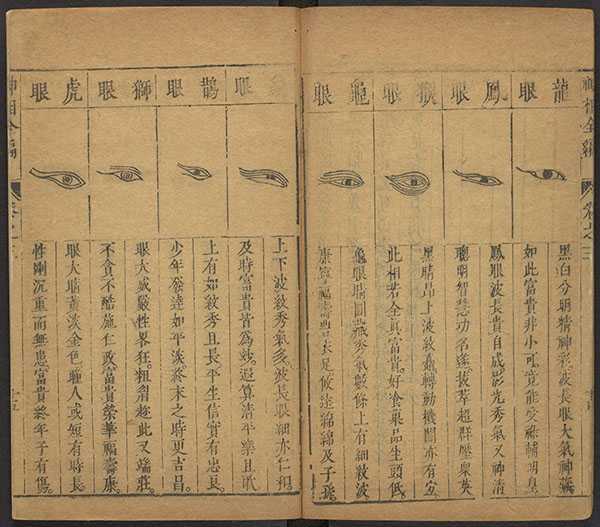 神相全編
卷之三
龍眼
鳳眼
猴眼
龜眼
黑白分明精神彩波長眼大氣神藏
如此富貴非小可竟能受祿輔明皇
鳳眼波長貴自成影光秀氣又神清
聰明智慧功名遂拔萃超群壓衆英
黑睛昂上波紋矗轉動機關亦有宜
此相若全真富貴好食菓品生頭低
龜眼睛圓藏秀氣數條上有細紋波
康寧福壽豐衣足攸遠綿綿及子孫
眼
鵲眼
獅眼
虎眼
上下波紋秀氣多波長眼細亦仁和
及時富貴皆爲妙遐算清平樂且歌
上有如紋秀且長平生信實有忠良
少年發達如平淡終末之時更吉昌
眼大威嚴性畧狂粗眉趂此又端莊
不貪不酷施仁政富貴榮華福壽康
眼大睛黃淡金色瞳人或短有時長
性剛沉重而無患富貴終年子有傷
神相全編
十五